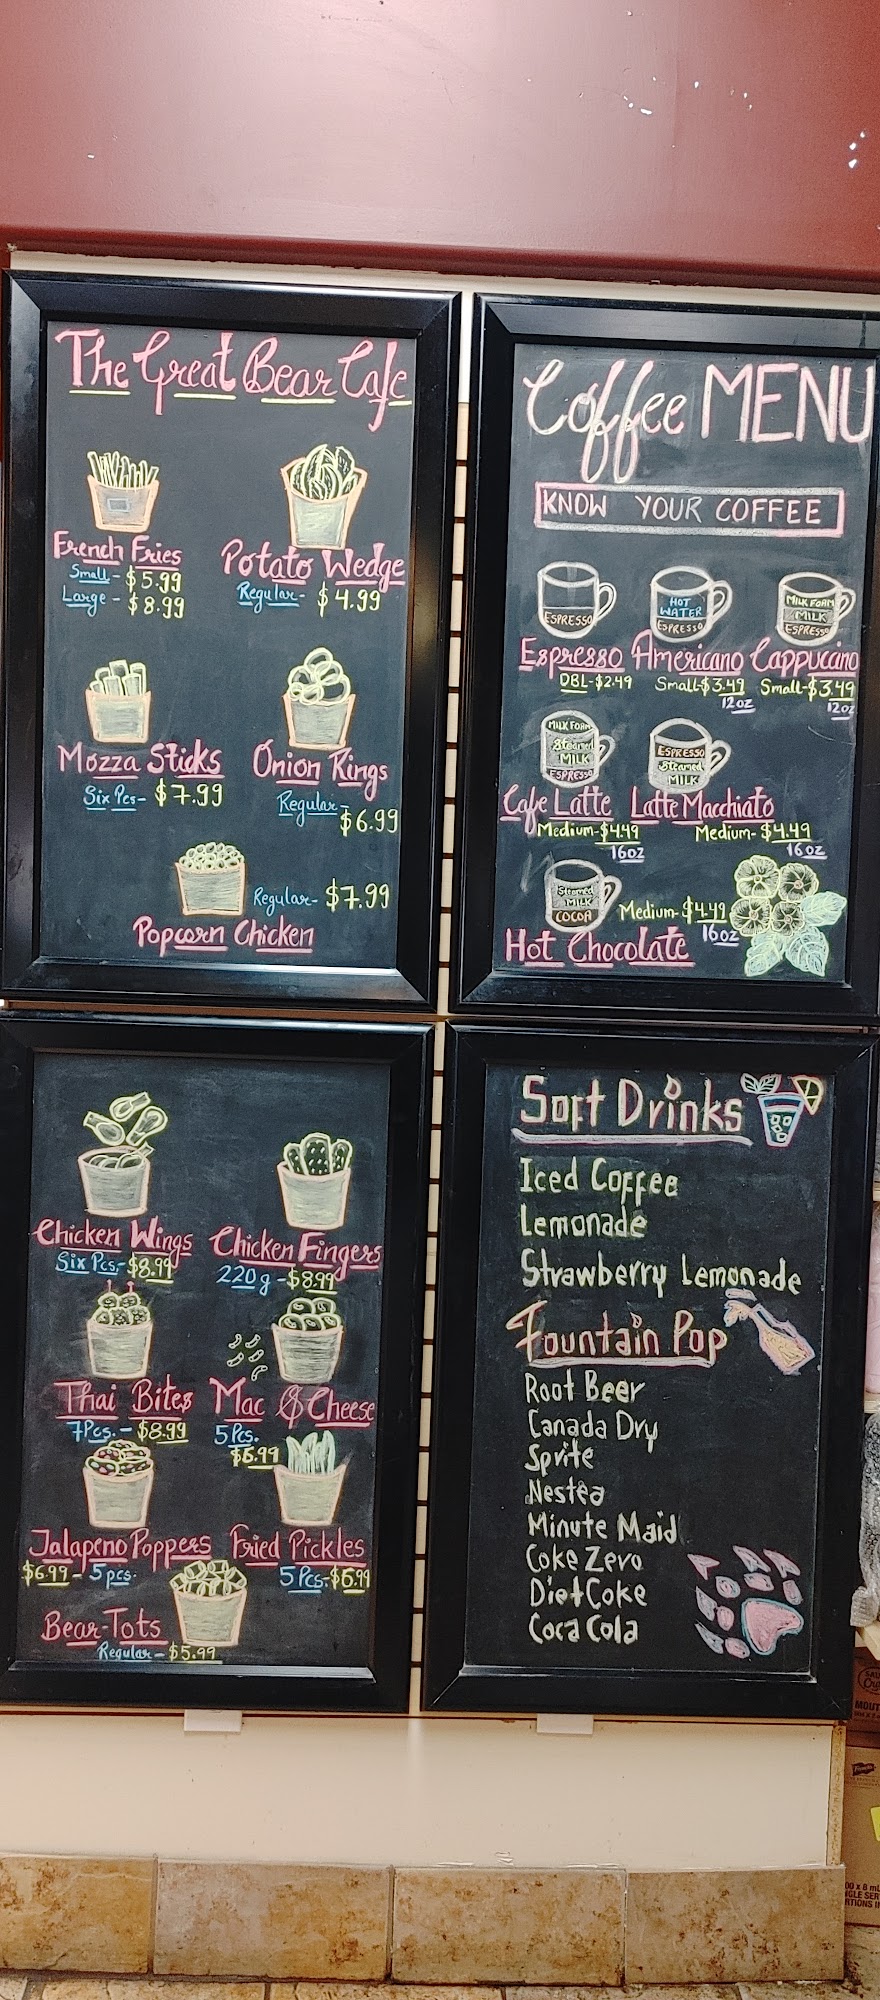 The Great Bear Cafe
French Fries
Small - $5.99
Large - $8.99
Potato Wedge
Regular - $4.99
Mozza Sticks
Six Pcs - $7.99
Onion Rings
Regular -
$6.99
Regular - $7.99
Popcorn Chicken
Coffee MENU
KNOW YOUR COFFEE
ESPRESSO
Espresso
DBL-$2.49
HOT
WATER
ESPRESSO
Americano
Small-$3.49
12oz
MILK FOAM
MILK
ESPRESSO
Cappuccino
Small-$3.49
12oz
MILK FOAM
Steamed
MILK
ESPRESSO
Cafe Latte
Medium-$4.49
16oz
ESPRESSO
Steamed
MILK
Latte Macchiato
Medium-$4.49
16oz
Steamed
MILK
COCOA
Medium-$4.49
16oz
Hot Chocolate
Chicken Wings
Six Pcs.-$8.99
Chicken Fingers
220g-$8.99
Thai Bites
7Pcs.-$8.99
Mac & Cheese
5Pcs.
Jalapeno Poppers
$6.99-5pcs.
Fried Pickles
5Pcs-
Bear-Tots
Regular-$5.99
Soft Drinks
Iced Coffee
Lemonade
Strawberry Lemonade
Fountain Pop
Root Beer
Canada Dry
Sprite
Nestea
Minute Maid
Coke Zero
Diet Coke
Coca Cola